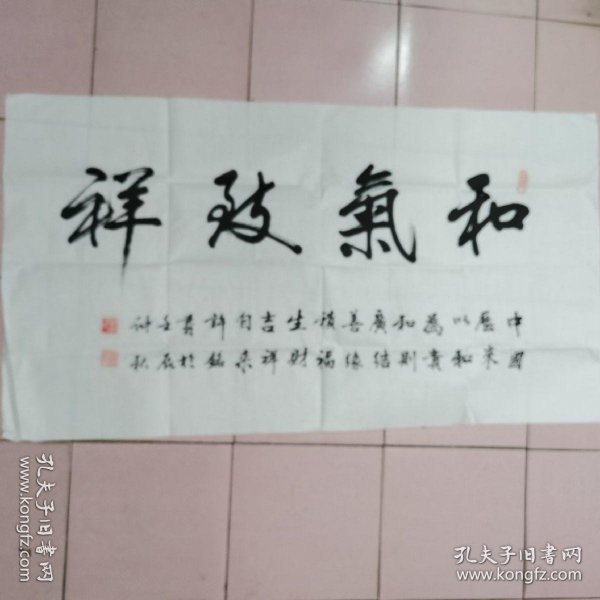 和氣致祥
中國
歷來
以和
為貴
和則
廣結
善緣
積福
生財
吉祥
自來
許銘
書於
壬辰
仲秋
孔夫子旧书网
www.kongfz.com
孔夫子旧书网
www.kongfz.com